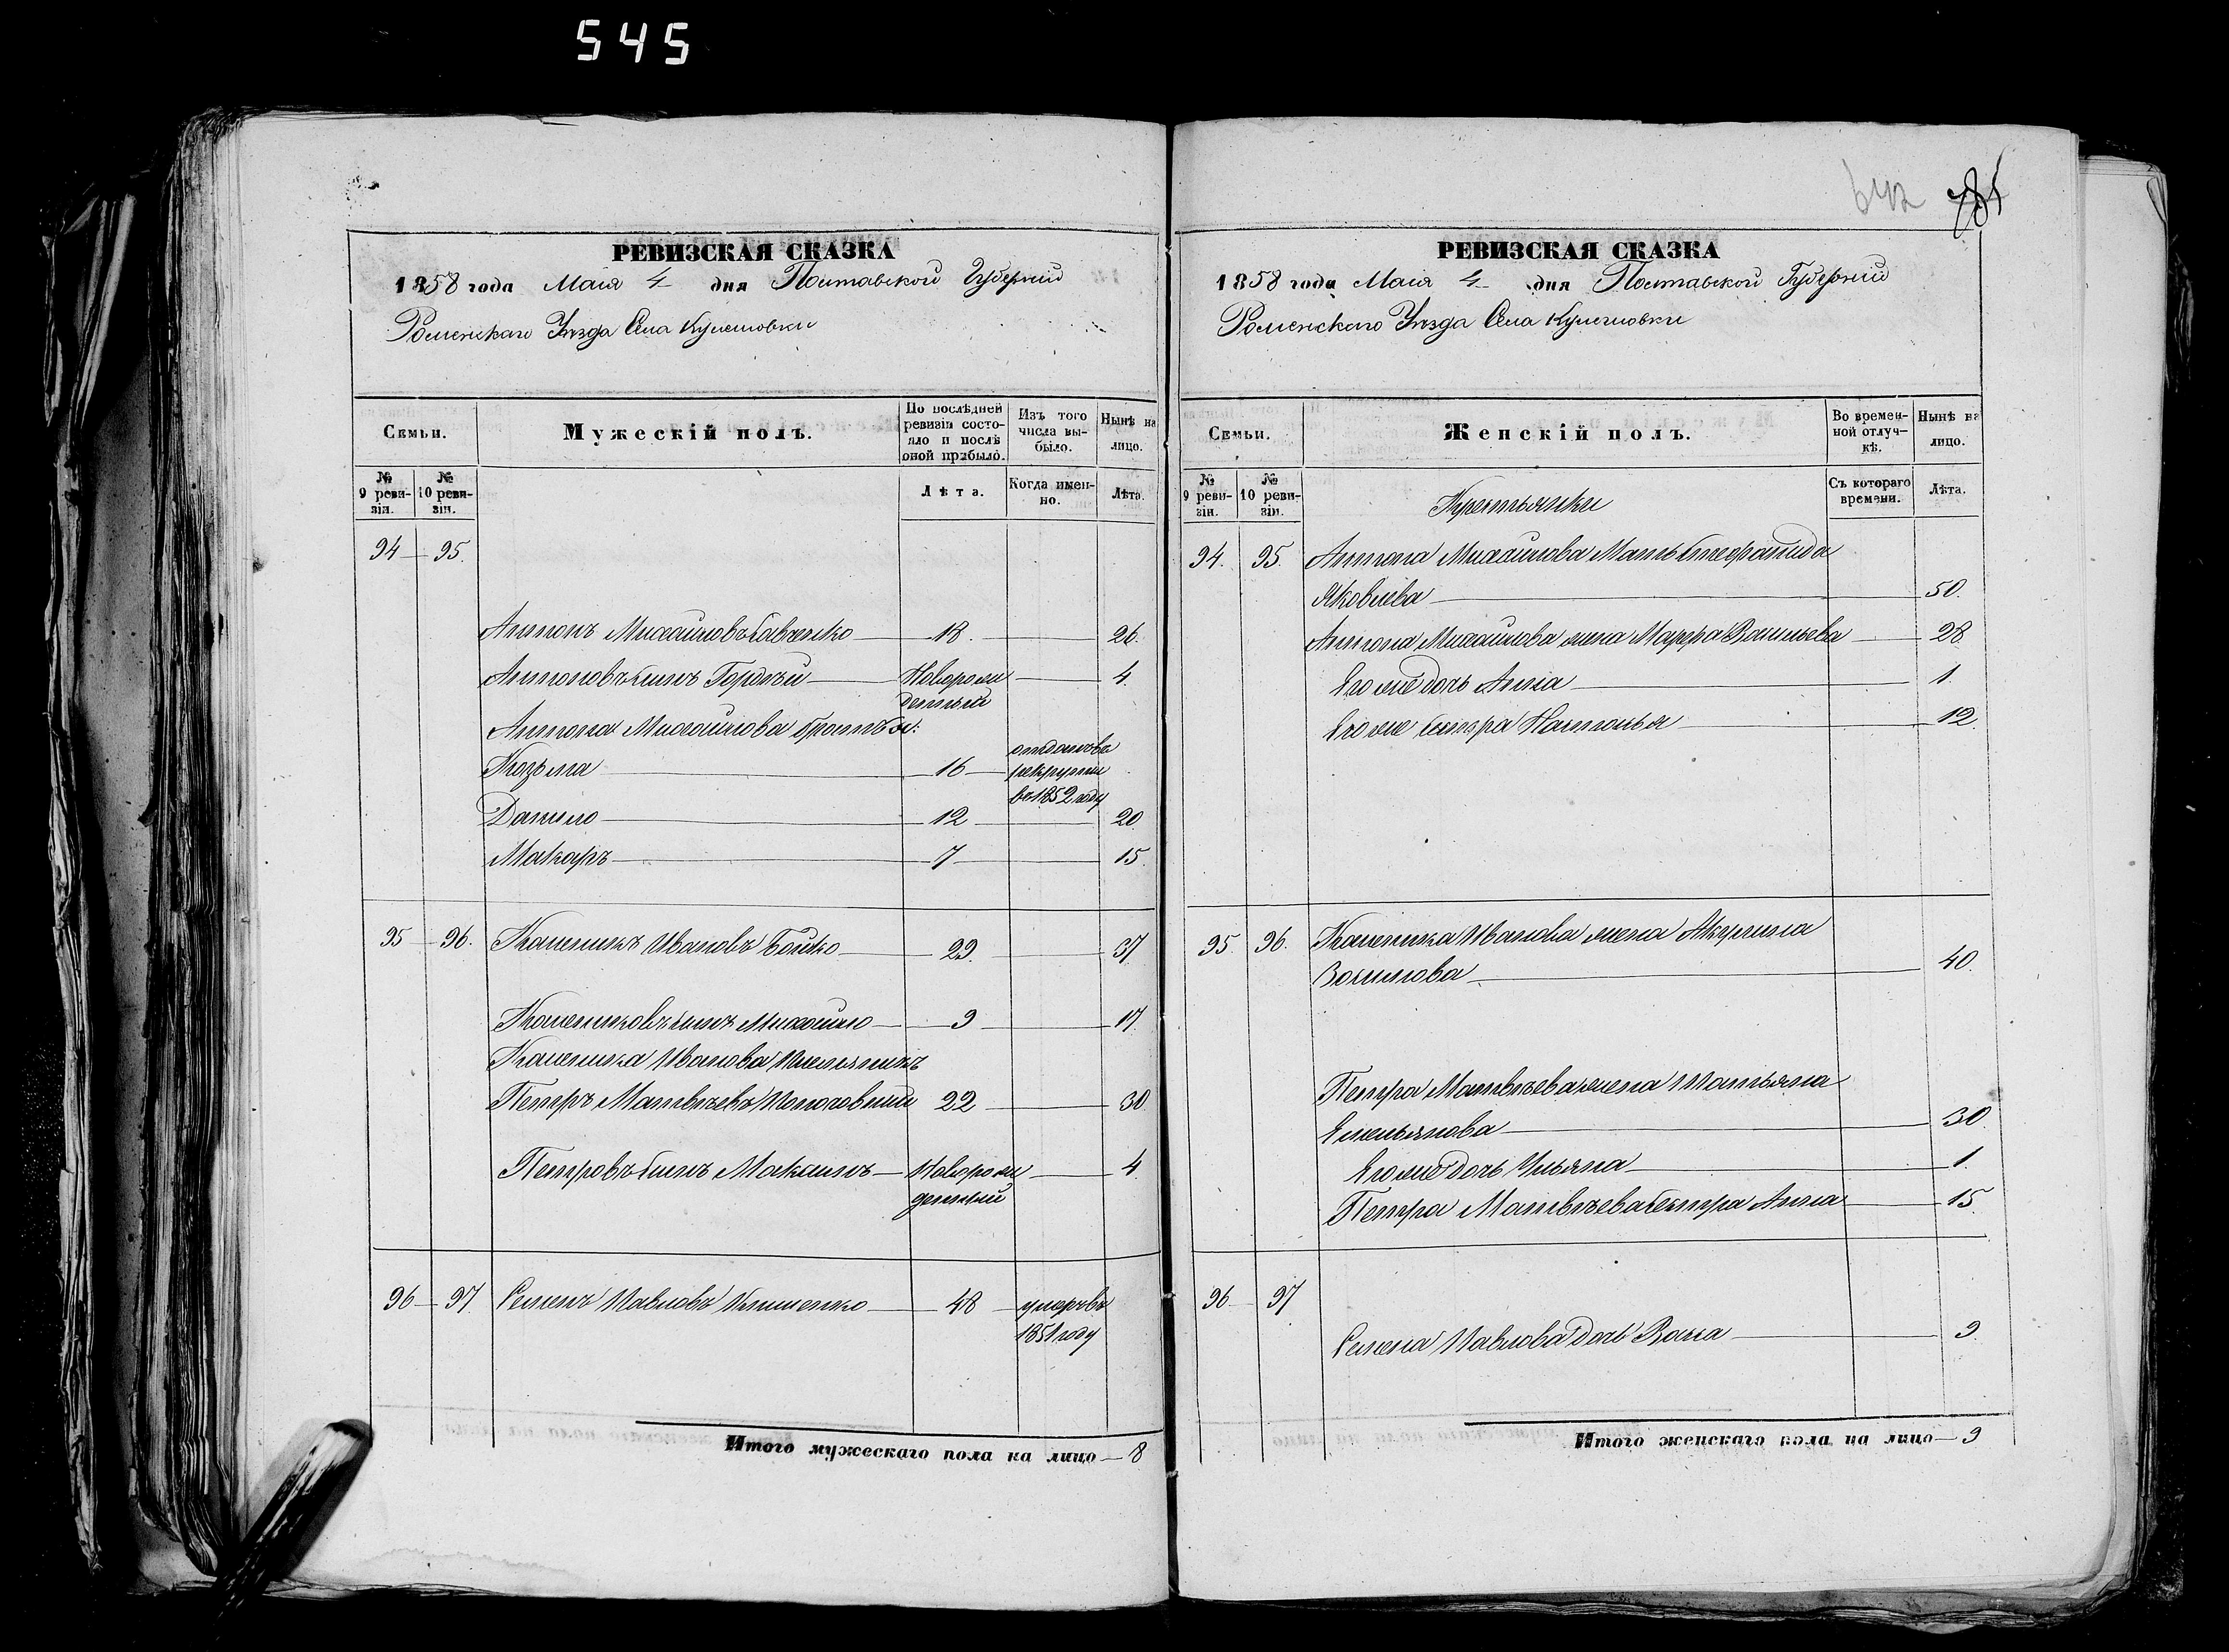 545
642
785
РЕВИЗСКАЯ СКАЗКА
1858 года Маія 4 дня Полтавской Губерніи
Роменскаго Уѣзда Села Кулешовки
Семьи.
Мужескій полъ.
По послѣдней ревизіи состояло и послѣ оной прибыло.
Изъ того числа выбыло.
Нынѣ на лицо.
№ 9 ревизіи.
№ 10 ревизіи.
Лѣта.
Когда именно.
Лѣта.
94 95.
Антонъ Михайловъ Савченко 18. 26.
Антоновъ сынъ Гордѣй Новорожденный 4.
Антона Михайлова братья:
Козьма 16 отданъ въ рекруты въ 1852 году
Данило 12 20
Макаръ 7 15.
95 96. Каленикъ Ивановъ Бойко 29. 37
Калениковъ сынъ Михайло 9 17.
Каленика Иванова племянникъ
Петръ Матвѣевъ 22 30
Петровъ сынъ Максимъ Новорожденный 4.
96 97 Семенъ Павловъ 48 умеръ въ 1851 году
Итого мужескаго пола на лицо 8
РЕВИЗСКАЯ СКАЗКА
1858 года Маія 4 дня Полтавской Губерніи
Роменскаго Уѣзда Села Кулешовки
Семьи.
Женскій полъ.
Во временной отлучкѣ.
Нынѣ на лицо.
№ 9 ревизіи.
№ 10 ревизіи.
Съ котораго времени.
Лѣта.
Крестьянки
94. 95. Антона Михайлова Мать Стефанида
Яковлева 50.
Антона Михайлова жена Марфа Васильева 28
Его же дочь Анна 1.
Его же сестра Наталья 12.
95. 96. Каленика Иванова жена Акулина
40.
Петра Матвѣева жена Татьяна
Емельянова 30
Его же дочь Ульяна 1.
Петра Матвѣева сестра Анна 15.
96 97
Семена Павлова дочь Васса 9.
Итого женскаго пола на лицо 9